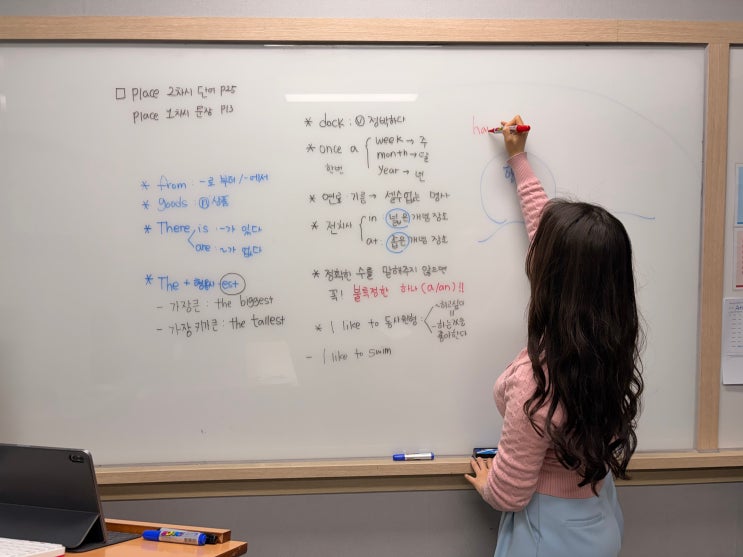 □ Place 2차시 단어 P25
Place 1차시 문장 P13
* from : -로 부터 / -에서
* goods : ⓝ 상품
* There is : -가 있다
are : -가 없다
* The + 형용사 est
- 가장큰 : the biggest
- 가장 키가큰 : the tallest
* dock : ⓥ 정박하다
* once a week → 주
한번 month → 달
year → 년
* 연료·기름 → 셀수없는 명사
* 전치사 in 넓은 개념 장소
at 좁은 개념 장소
* 정확한 수를 말해주지 않으면
꼭! 불특정한 하나 (a/an) !!
* I like to 동사원형 : -하고싶다
=
-하는것을
좋아한다
- I like to swim
ha